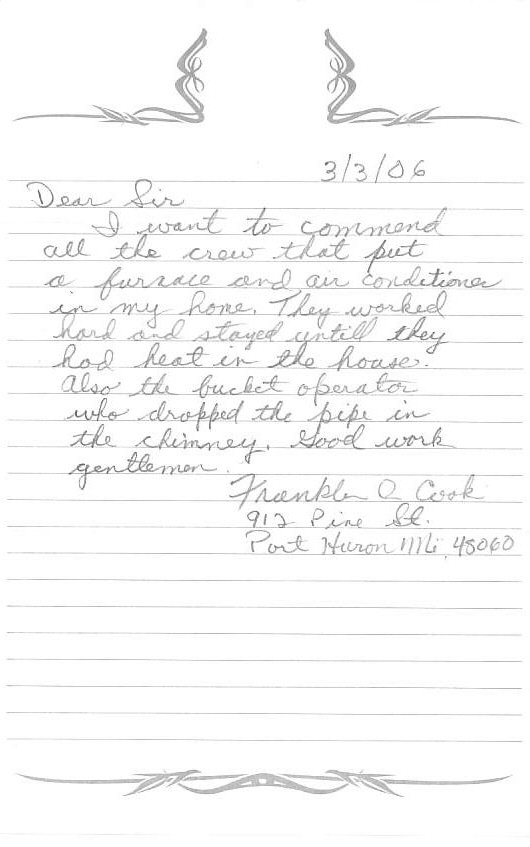 3/3/06
Dear Sir
I want to commend
all the crew that put
a furnace and air conditioner
in my home. They worked
hard and stayed untill they
had heat in the house.
Also the bucket operator
who dropped the pipe in
the chimney. Good work
gentlemen.
Franklin A Cook
912 Pine St.
Port Huron Mi 48060